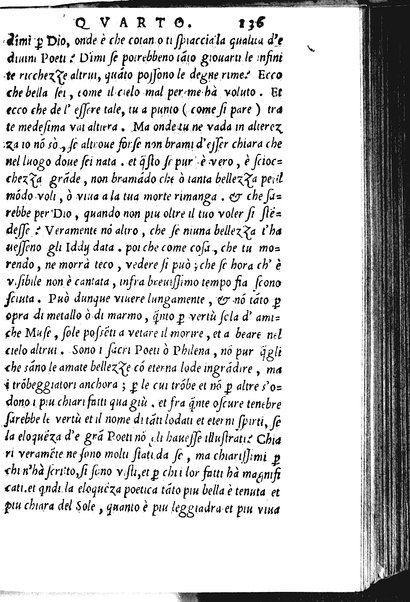 QVARTO. 136
dimi ꝑ Dio, onde è che cotanto ti spiaccia la qualità d'e
diuini Poeti? Dimi se potrebbeno tāto giouarti le infini
te ricchezze altrui, quāto possono le degne rime? Ecco
che bella sei, come il cielo mal per me hà voluto. Et
ecco che de l'essere tale, tu a punto (come si pare) tra
te medesima vai altiera. Ma onde tu ne vada in alterez
za io nō sò, se altroue forse non brami d'esser chiara che
nel luogo doue sei nata. et q̄sto se pur è vero, è scioc=
chezza grāde, non bramādo che ò tanta bellezza pe'il
mōdo voli, ò viua a la tua morte rimanga. & che sa=
rebbe per Dio, quando non piu oltre il tuo voler si stē=
desse? Veramente nō altro, che se niuna bellezza t'ha
uesseno gli Iddij data. poi che come cosa, che tu mo=
rendo, ne morrà teco, vedere si può; che se hora ch'è
visibile non è cantata, infra breuissimo tempo fia scono
sciuta. Può dunque viuere lungamente, & nō tāto ꝑ
opra di metallo ò di marmo, q̄nto ꝑ vertù scla d'ami=
che Muse, sole possēti a vetare il morire, et a beare nel
cielo altrui. Sono i sacri Poeti ò Philena, nō pur q̄gli
che sāno le amate bellezze cō eterna lode ingrādire, ma
i trōbeggiatori anchora; ꝑ le cui trōbe et nō ꝑ altre s'o=
dono i piu chiari fatti qua giù. et fra q̄nte oscure tenebre
sarebbe le vertù et il nome di tāti lodati et eterni spirti, se
la eloquēza d'e grā Poeti nō gli hauesse illustrati? Chia
ri veramēte ne sono molti stati da se, ma chiarissimi ꝑ
chi n'hà scritto, si sono visti, et ꝑ chi i lor fatti hà magnifi
cati. et q̄ndi la eloquēza poetica tāto piu bella è tenuta et
piu chiara del Sole, quanto è piu leggiadra et piu viua